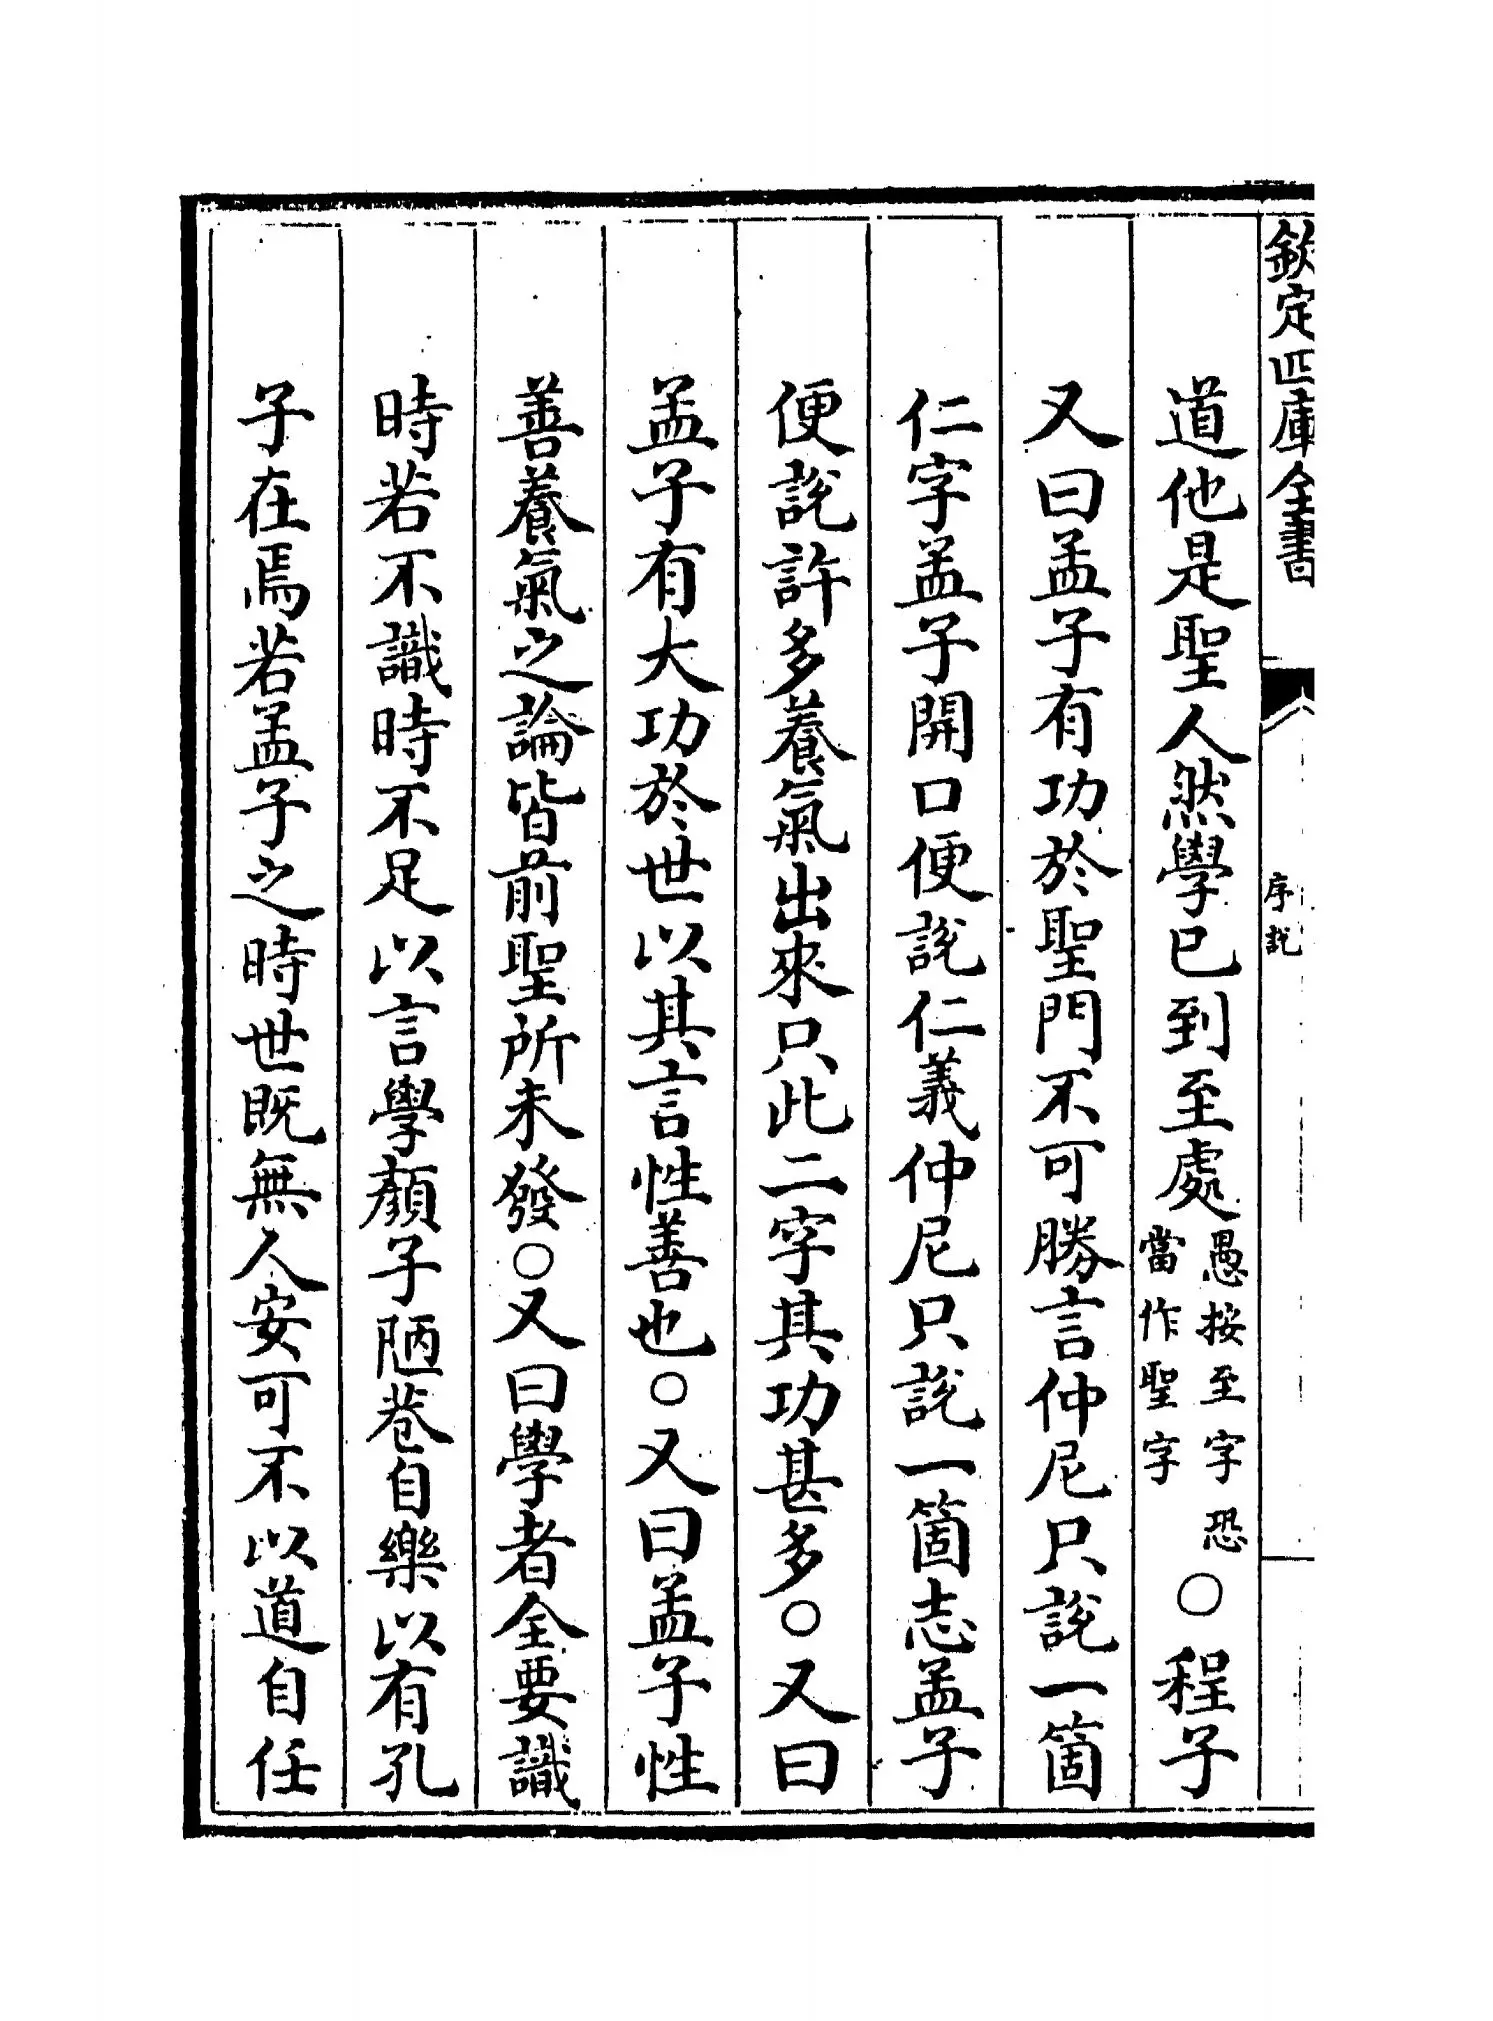 欽定四庫全書
序說
道他是聖人然學已到至處愚按至字恐當作聖字○程子
又曰孟子有功於聖門不可勝言仲尼只說一箇
仁字孟子開口便說仁義仲尼只說一箇志孟子
便說許多養氣出來只此二字其功甚多○又曰
孟子有大功於世以其言性善也○又曰孟子性
善養氣之論皆前聖所未發○又曰學者全要識
時若不識時不足以言學顏子陋巷自樂以有孔
子在焉若孟子之時世既無人安可不以道自任